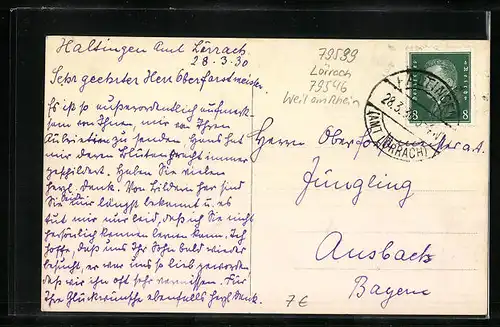 Haltingen Amt Lörrach
28.3.30
Sehr geehrter Herr Oberforstmeister.
Es ist so außerordentlich aufmerk-
sam von Ihnen, mir von Ihren
zu senden. Hans hat
mir deren Blütenpracht immer
geschildert. Haben Sie vielen
herzl. Dank. Von Bildern her sind
Sie mir längst bekannt u. es
tut mir nur leid, daß ich Sie nicht
persönlich kennen lernen kann. Ich
hoffe, daß uns Ihr Sohn bald wieder
besucht, er war uns so lieb geworden
daß wir ihn oft sehr vermissen. Für
Ihre Glückwünsche ebenfalls herzl. Dank.
79599
Lörrach
79546
Weil am Rhein
8 8
HALTINGEN
28.3.30
(AMT LÖRRACH)
Herrn Oberforstmeister a.D.
Jüngling
Ansbach
Bayern
7€